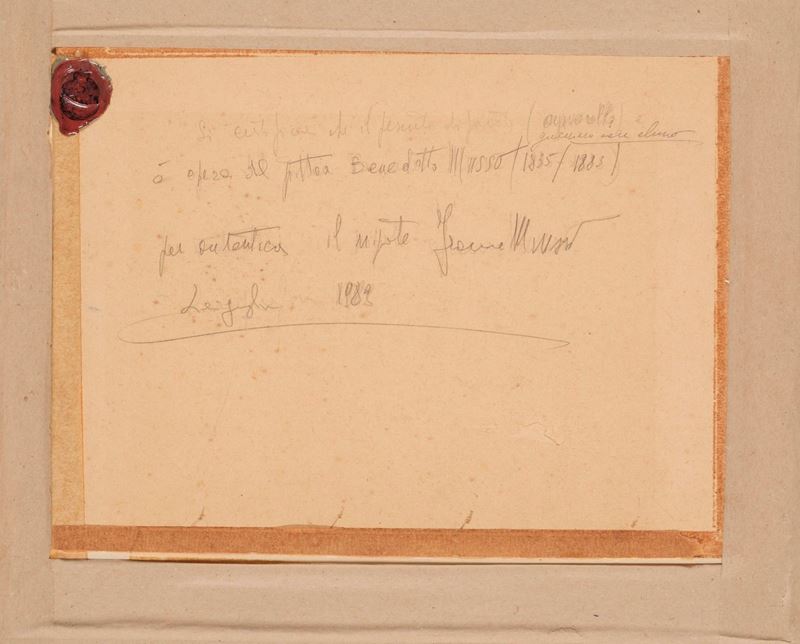 Si certifica che il presente dipinto (acquarello) e
è opera del pittore Benedetto Musso (1835/1883)
per autentica il nipote Musso
Laigueglia 1983